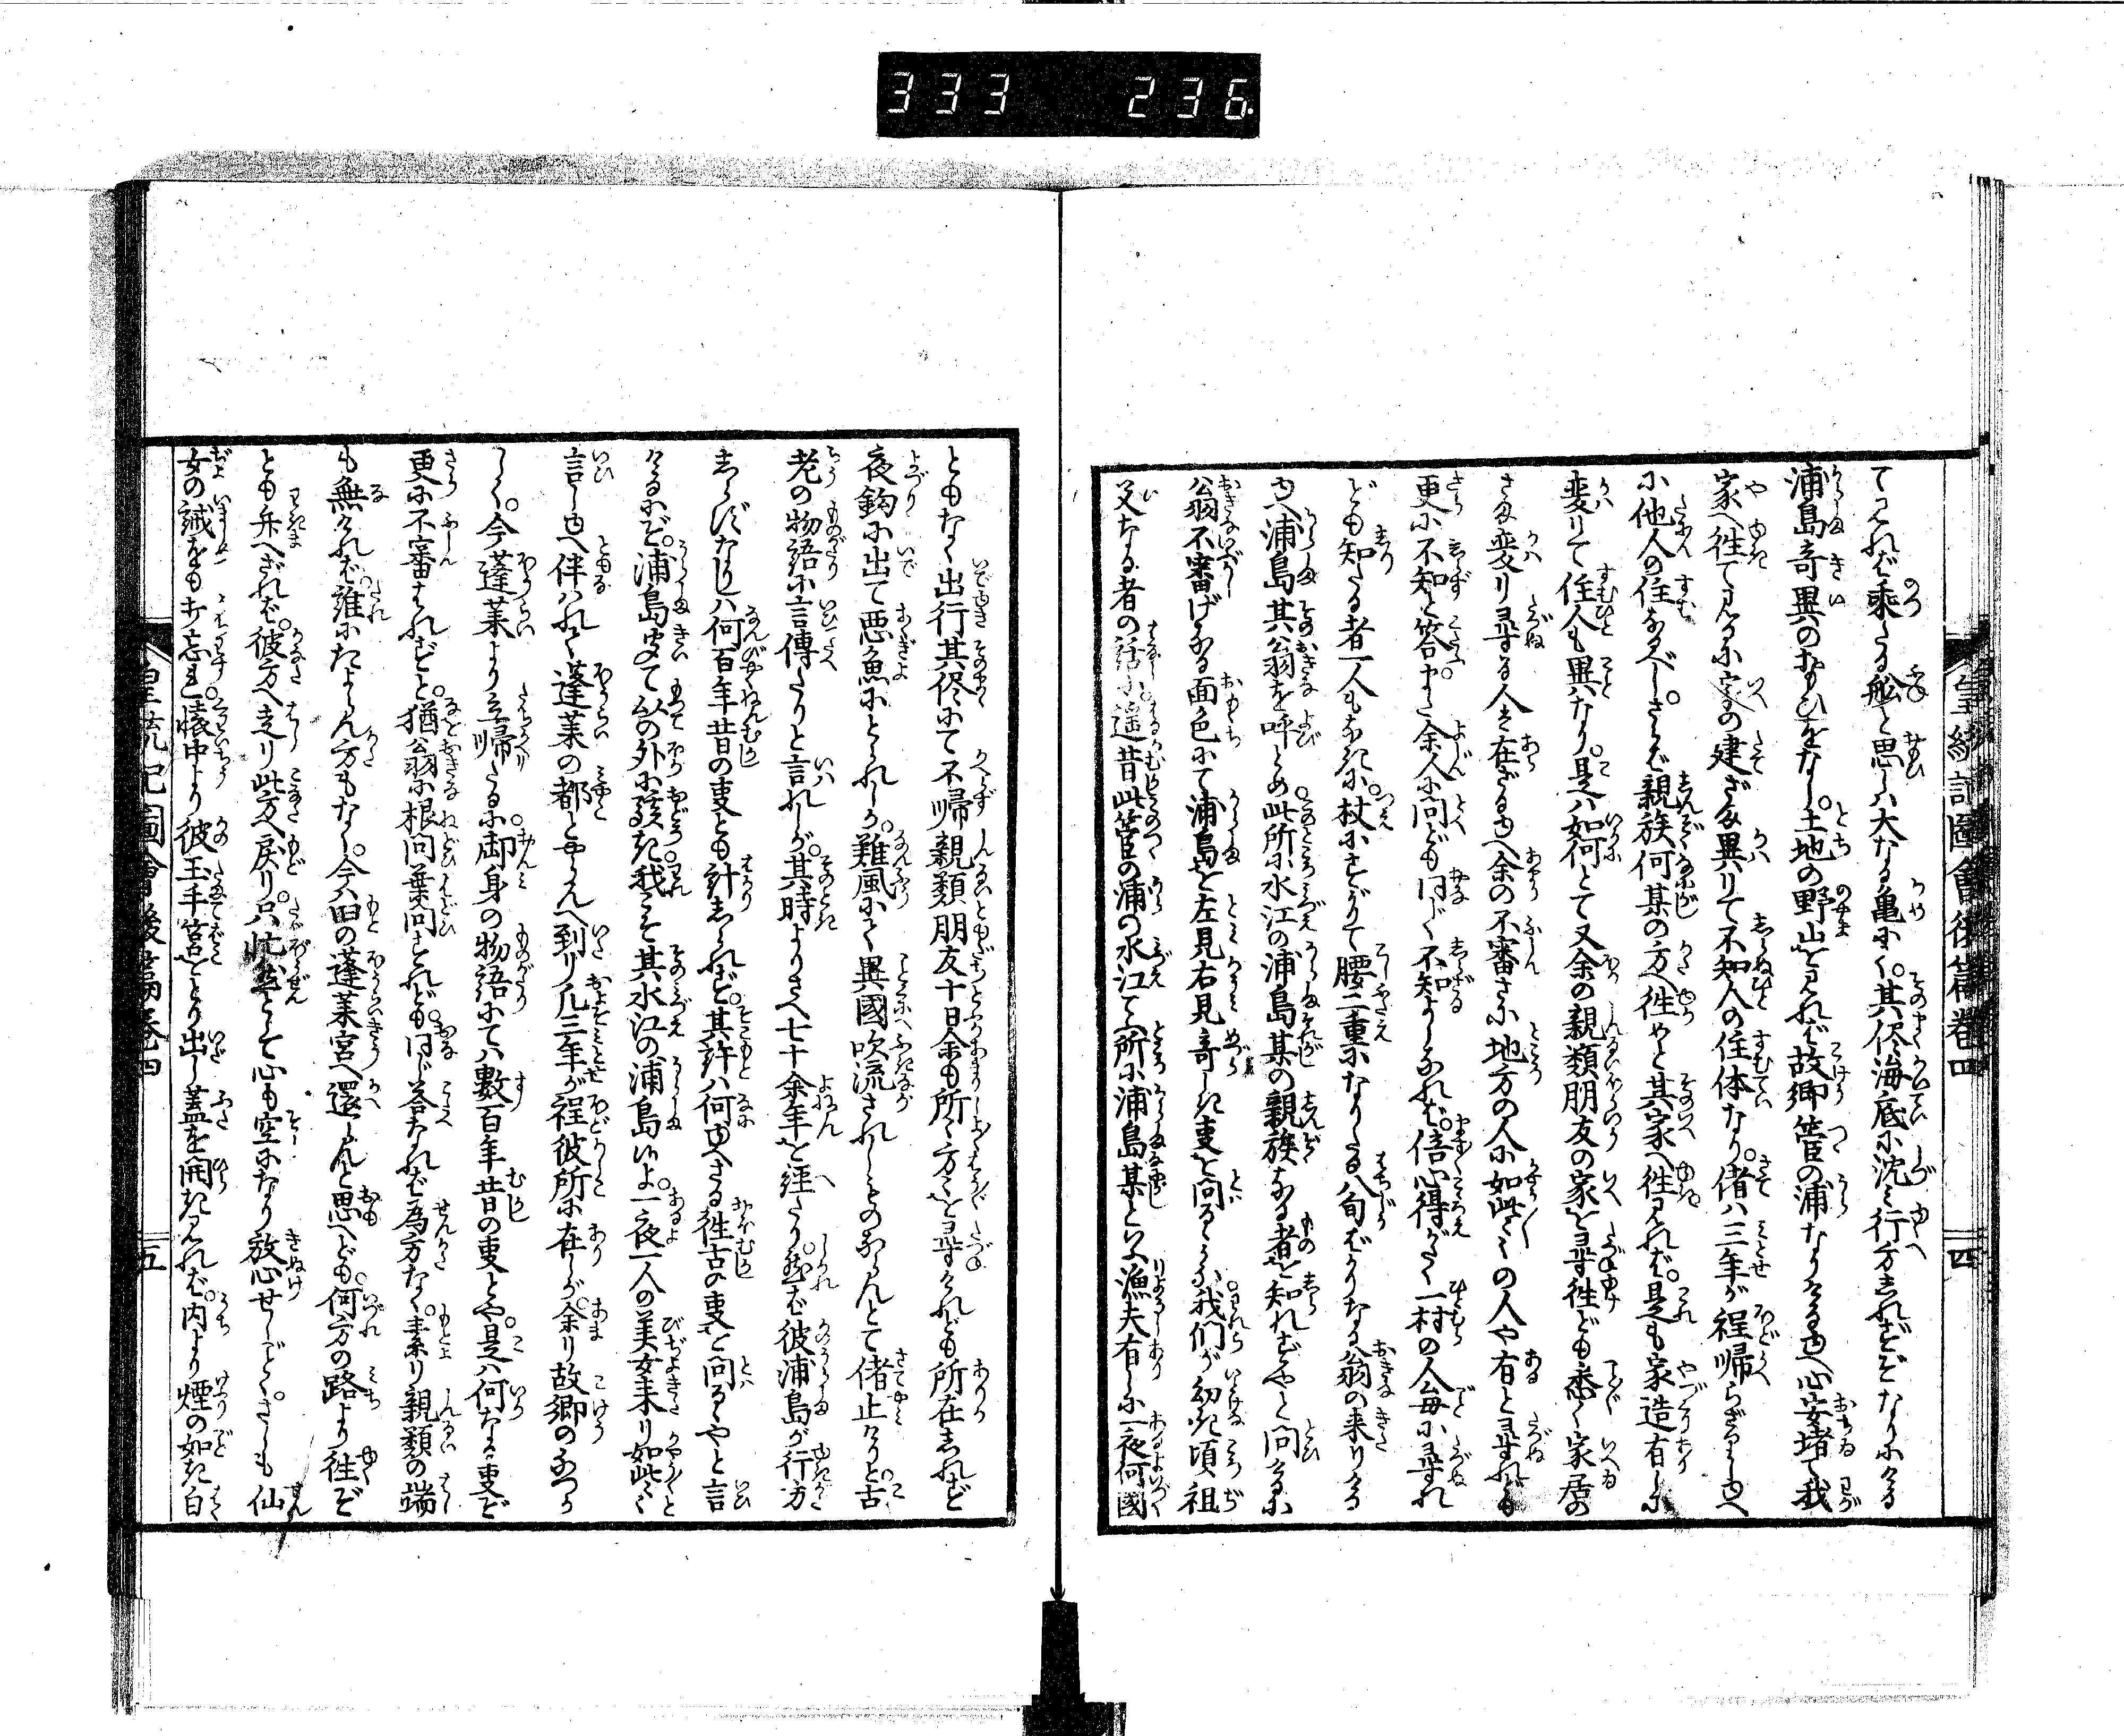 333 236.
皇統記圖會後篇卷四
四
てみれば乗たる舩と思しハ大なる亀にて。其侭海底に沈み行方しれずぞなりにける
浦島奇異のおもひをなし。土地の野山をみれば故郷管の浦なりける由へ心安堵て我
家へ徃てみるに家の建ざま異りて不知人の住体なり。偖ハ三年が程帰らざりし由へ
に他人の住なるべし。さらば親族何某の方へ徃やと其家へ徃みれば。是も家造有しに
変りて住人も異なり。是ハ如何とて又余の親類朋友の家を尋徃ども悉く家居の
さま変リ尋る人さへ在ざる由へ余の不審さに地方の人に如此〳〵の人や有と尋れども
更に不知と答ゆ。また余人に問ども同じく不知よしなれば。倍心得がたく一村の人毎に尋れ
ども知たる者一人もなきに。杖にすがりて腰二重になりたる八旬ばかりなる翁の来りける
由へ浦島其翁を呼とめ。此所に水江の浦島某の親族なる者を知れずやと問けるに
翁不審げなる面色にて浦島を左見右見奇しき事を問るゝよ。我們が幼き頃祖
父なる者の話に遥昔此管の浦の水江てふ所に浦島某といふ漁夫有しに一夜何國
ともなく出行其侭にて不帰親類朋友十日余も所〻方〻を尋けれども所在しれず
夜釣に出て悪魚にとられしか。難風にて異國へ吹流されしものならんとて偖止けりと古
老の物語に言傳たりと言れしが。其時よりさへ七十余年を経たり。然ば彼浦島が行方
しらずなりしハ何百年昔の事とも計しられず。其許ハ何由へさる徃古の事を問るゝやと言
けるにぞ。浦島聞て以の外に驚き。我こそ其水江の浦島ゐよ。一夜一人の美女来り如此〻〻と
言し由へ伴ハれて蓬莱の都とやらんへ到リ凡三年が程彼所に在しが。余リ故郷のなつか
しく。今蓬莱より立帰たるに。御身の物語にてハ數百年昔の事とや。是ハ何なる事ど
更に不審はれずと。猶翁に根問葉問すれども。同じ答なれば為方なく。素リ親類の端
も無れば誰にたよらん方もなく。今ハ旧の蓬莱宮へ還らんと思へども。何方の路より徃ぞ
とも弁へざれば。彼方へ走リ此方へ戻リ。只忙然として心も空になり放心せしごとく。さしも仙
女の誡をも打忘れ。懐中より彼玉手筥をとり出し蓋を開きみれば。内より煙の如き白
皇統記圖會後篇卷四
五